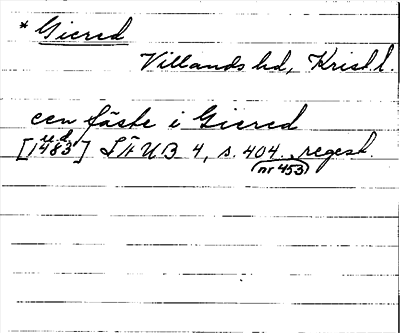 * Giered
Villands hd, Krist l.
een fäste i Giered
[u d 1483] LÄUB 4, s. 404. regest.
nr 453